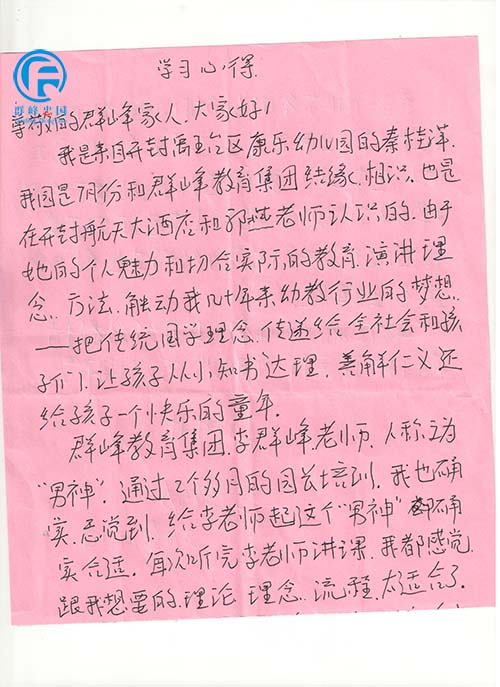 群峰出国
学习心得.
尊敬的群峰家人.大家好!
我是来自开封禹王台区康乐幼儿园的秦桂萍.
我园是7月份和群峰教育集团结缘.相识.也是
在开封航天大酒店和郭燕老师认识的.由于
她的个人魅力和切合实际.的教育.演讲理
念.方法.触动我几十年来幼教行业的梦想.
——把传统国学理念.传递给全社会和孩
子们.让孩子从小.知书达理.善解仁义还
给孩子一个快乐的童年.
群峰教育集团.李群峰.老师.人称之为
“男神”.通过2个多月的园长培训.我也确
实.感觉到.给李老师起这个“男神”确
实合适.每次听完李老师讲课.我都感觉.
跟我想要的.理论 理念.流程.太适合了.